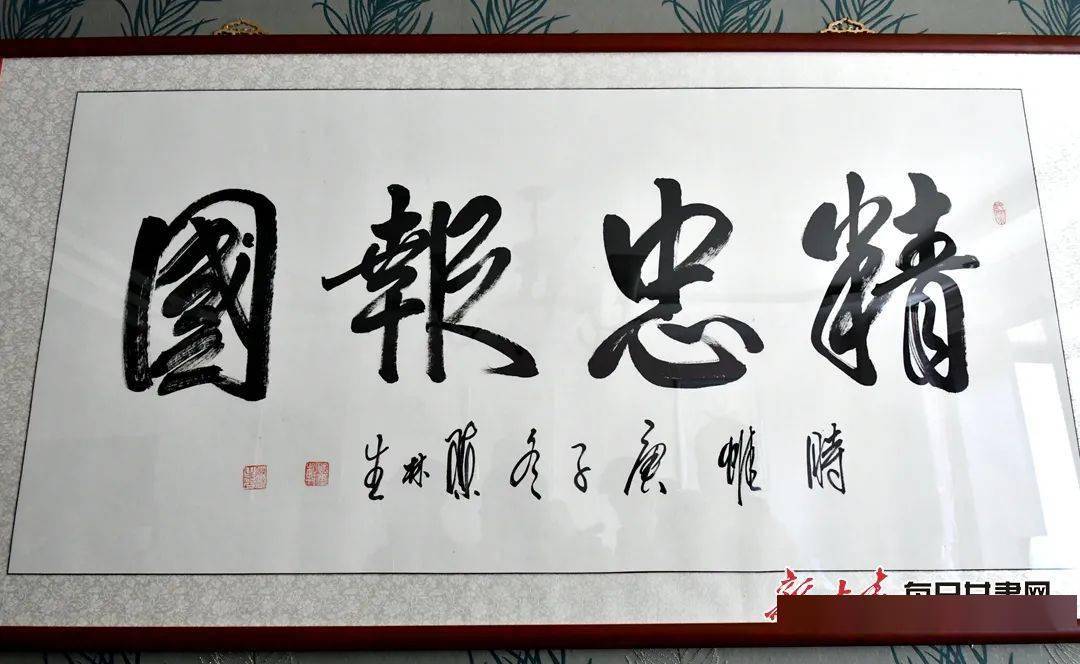 精忠報國
時惟庚子冬陳林生
新甘肃 每日甘肃网